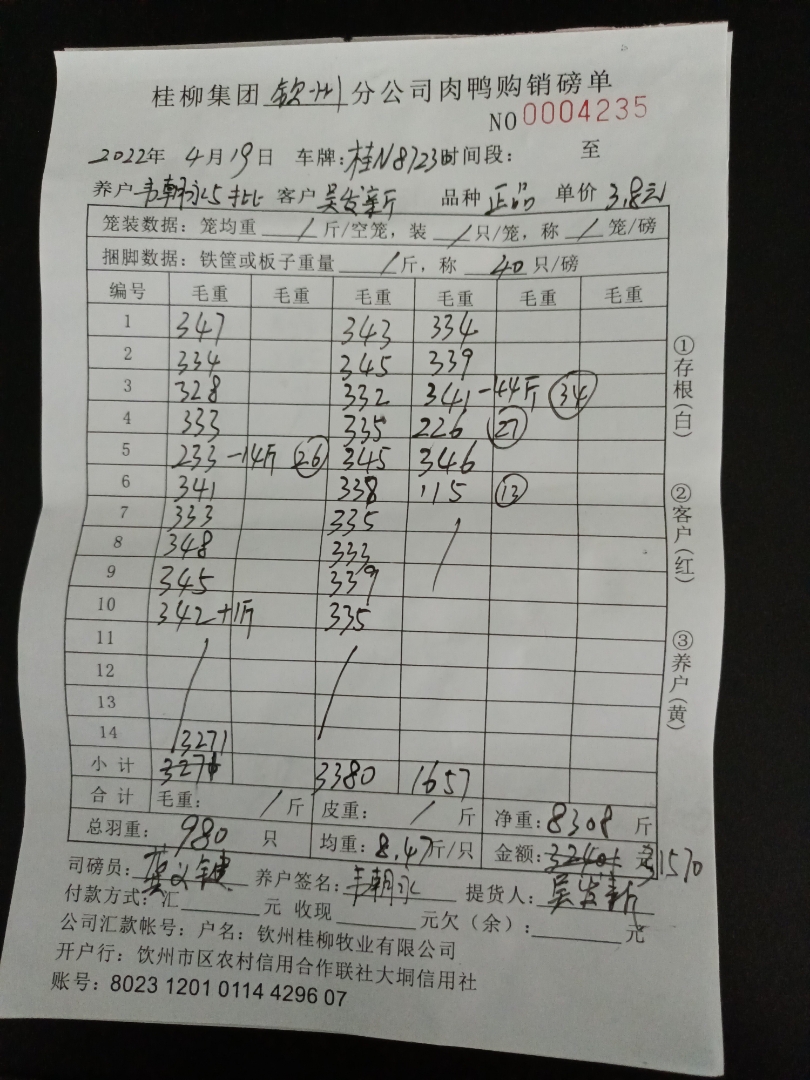 桂柳集团 钦州 分公司肉鸭购销磅单
NO 0004235
2022年 4月19日 车牌:桂N8723 时间段: 至
养户 韦朝永5批 客户 吴发新 品种 正品 单价 3.8元
笼装数据: 笼均重 / 斤/空笼, 装 / 只/笼, 称 / 笼/磅
捆脚数据: 铁筐或板子重量 / 斤, 称 40 只/磅
编号 毛重 毛重 毛重 毛重 毛重 毛重
1 347 343 334
2 334 345 339
3 328 332 341 -44斤 34
4 333 335 226 27
5 233 -14斤 26 345 346
6 341 338 115 13
7 333 335 /
8 348 333
9 345 339
10 342 +1斤 335
11 / /
12
13
14 3271
小计 3271 3380 1657
合计 毛重: / 斤 皮重: / 斤 净重: 8308 斤
总羽重: 980 只 均重: 8.47斤/只 金额: 31570 元
司磅员: 养户签名: 韦朝永 提货人: 吴发新
付款方式: 汇 元 收现 元欠(余): 元
公司汇款帐号: 户名: 钦州桂柳牧业有限公司
开户行: 饮州市区农村信用合作联社大垌信用社
账号: 8023 1201 0114 4296 07
①存根(白)
②客户(红)
③养户(黄)